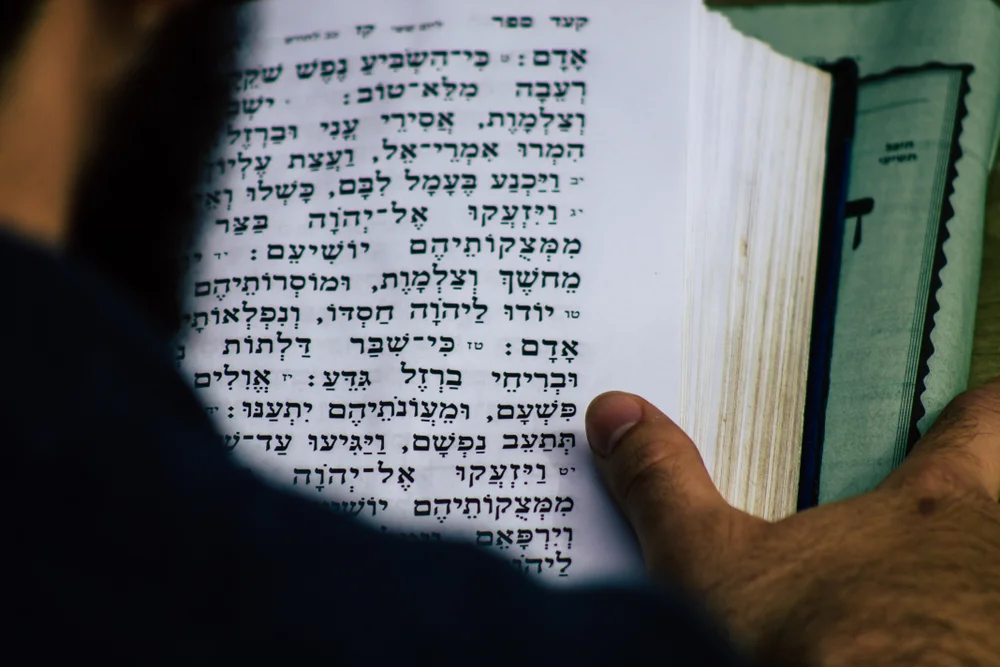 קעד ספר ליום ששי קז
אָדָם: ט כִּי־הִשְׂבִּיעַ נֶפֶשׁ
רְעֵבָה מִלֵּא־טוֹב: י
וְצַלְמָוֶת, אֲסִירֵי עֳנִי וּבַרְזֶל
הִמְרוּ אִמְרֵי־אֵל, וַעֲצַת
יב וַיַּכְנַע בֶּעָמָל לִבָּם, כָּשְׁלוּ
יג וַיִּזְעֲקוּ אֶל־יְהֹוָה בַּצַּר
מִמְּצֻקוֹתֵיהֶם יוֹשִׁיעֵם: יד
מֵחֹשֶׁךְ וְצַלְמָוֶת, וּמוֹסְרוֹתֵיהֶם
טו יוֹדוּ לַיהֹוָה חַסְדּוֹ,
אָדָם: טז כִּי־שִׁבַּר דַּלְתוֹת
וּבְרִיחֵי בַרְזֶל גִּדֵּעַ: יז אֱוִלִים
פִּשְׁעָם, וּמֵעֲוֹנֹתֵיהֶם יִתְעַנּוּ:
תְּתַעֵב נַפְשָׁם, וַיַּגִּיעוּ
יט וַיִּזְעֲקוּ אֶל־יְהֹוָה
מִמְּצֻקוֹתֵיהֶם
וְיִרְפָּאֵם